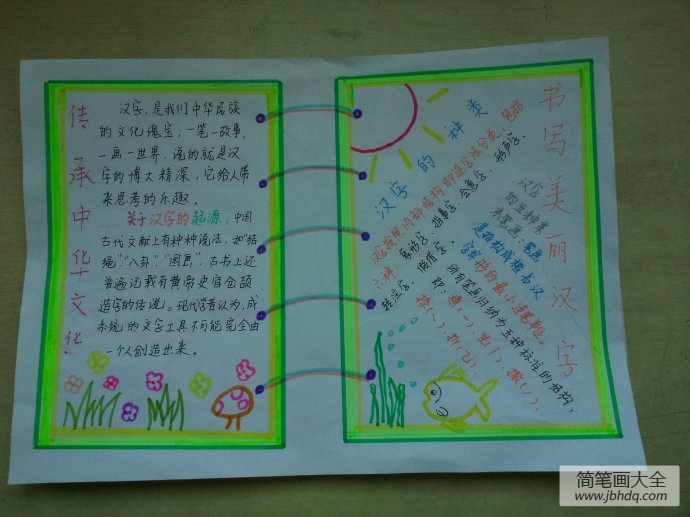 传承中华文化
汉字,是我们中华民族
的文化瑰宝,一笔一故事,
一画一世界,说的就是汉
字的博大精深,它给人带
来思考的乐趣。
关于汉字的起源,中国
古代文献上有种种说法,如“结
绳”“八卦”“图画”,古书上还
普遍记载有黄帝史官仓颉
造字的传说。现代学者认为,成
系统的文字工具不可能完全由
一个人创造出来。
书写美丽汉字
汉字的种类
汉字按照
即造字法分类
六种:象形字、指事字、会意字、形声字、
转注字、假借字。
汉字
的五种基
本笔画:笔画
是指构成楷书汉
字字形的最小
所有笔画归纳为五种标准的结构,
即:横(一)、竖(丨)、撇(丿)、
捺(㇏)、折(乙)。
简笔画大全
www.jbhdq.com